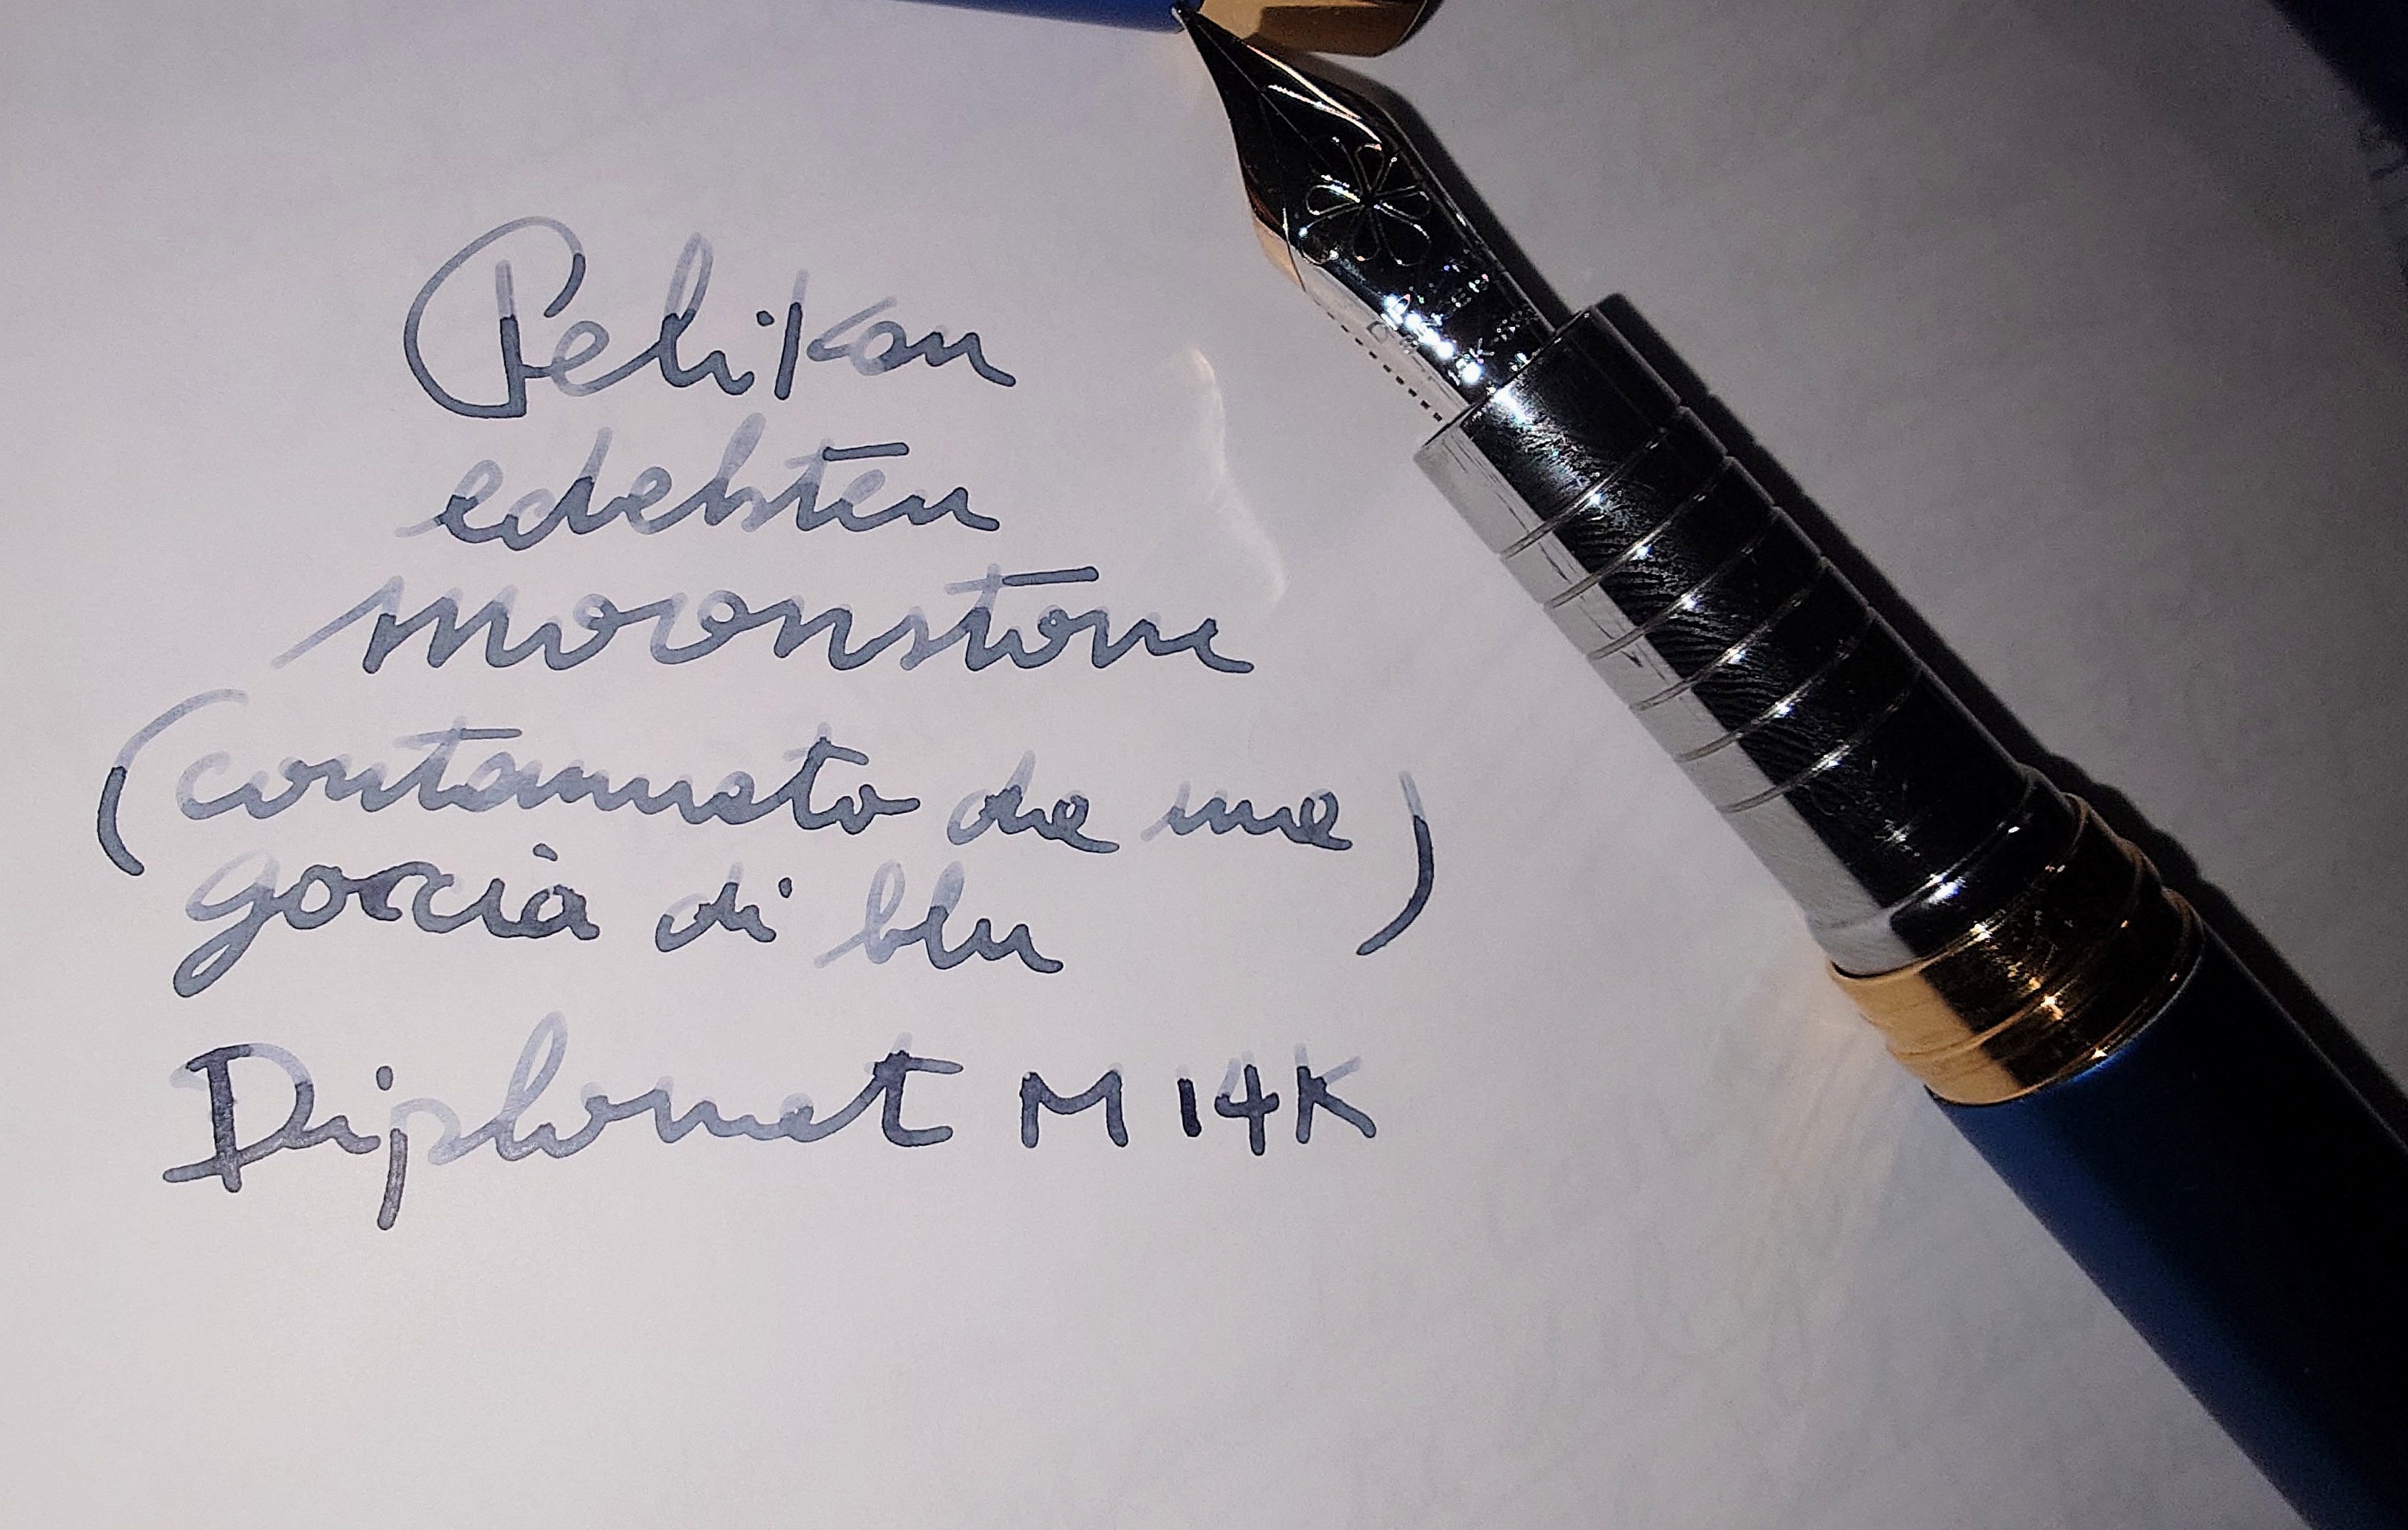 Pelikan
edelsten
moonstone
(contaminato da una
goccia di blu)
Diplomat M 14K